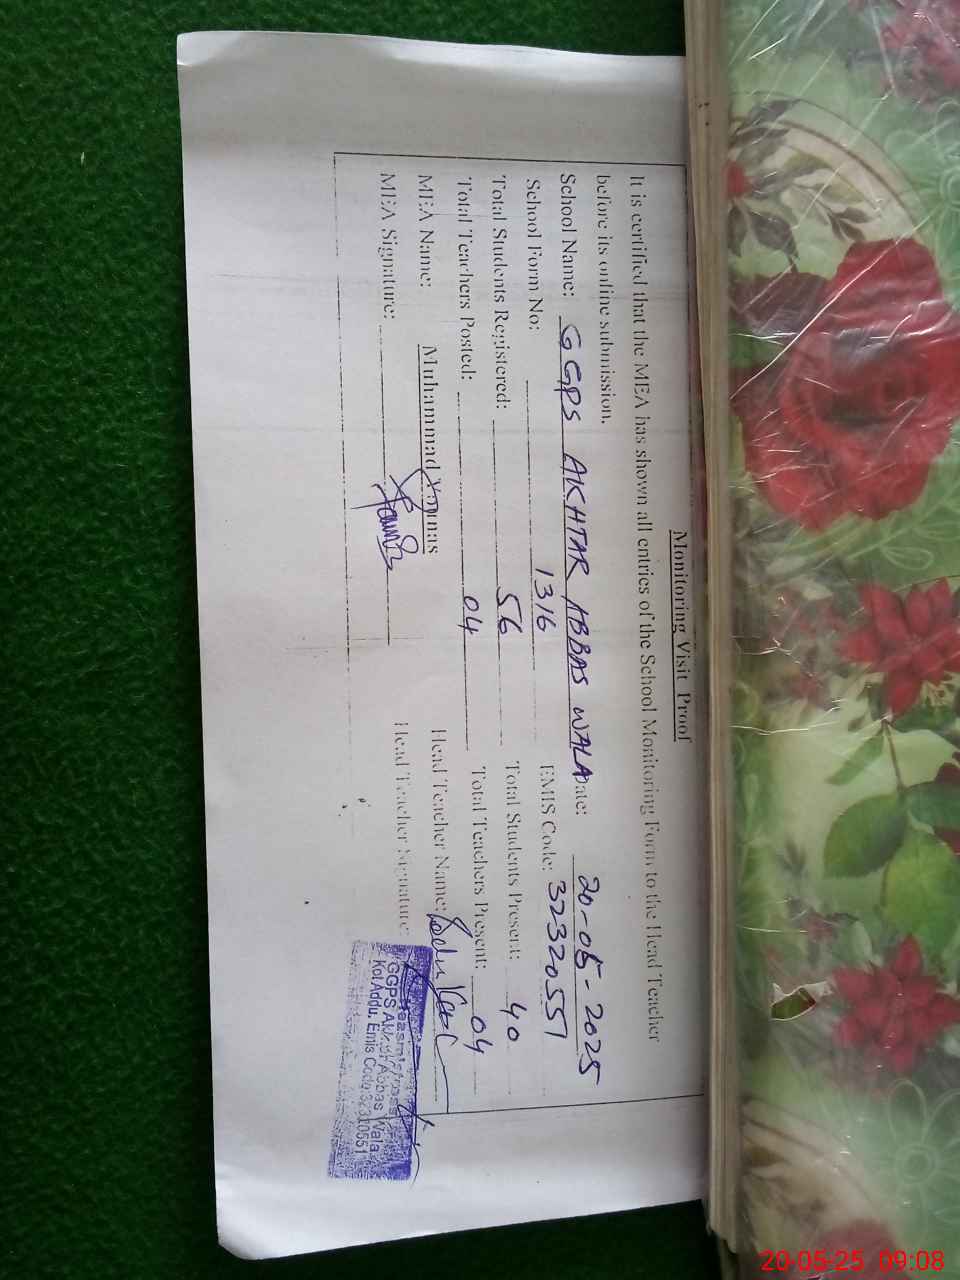 Monitoring Visit Proof
It is certified that the MEA has shown all entries of the School Monitoring Form to the Head Teacher
before its online submission.
School Name: GGPS AKHTAR ABBAS WALA Date: 20-05-2025
School Form No: 1316 EMIS Code: 32320551
Total Students Registered: 56 Total Students Present: 40
Total Teachers Posted: 04 Total Teachers Present: 04
MEA Name: Muhammad Younas Head Teacher Name:
MEA Signature: Head Teacher Signature:
GGPS Akhtar Abbas Wala
Kot Addu. Emis Code 32320551
20-05-25 09:08